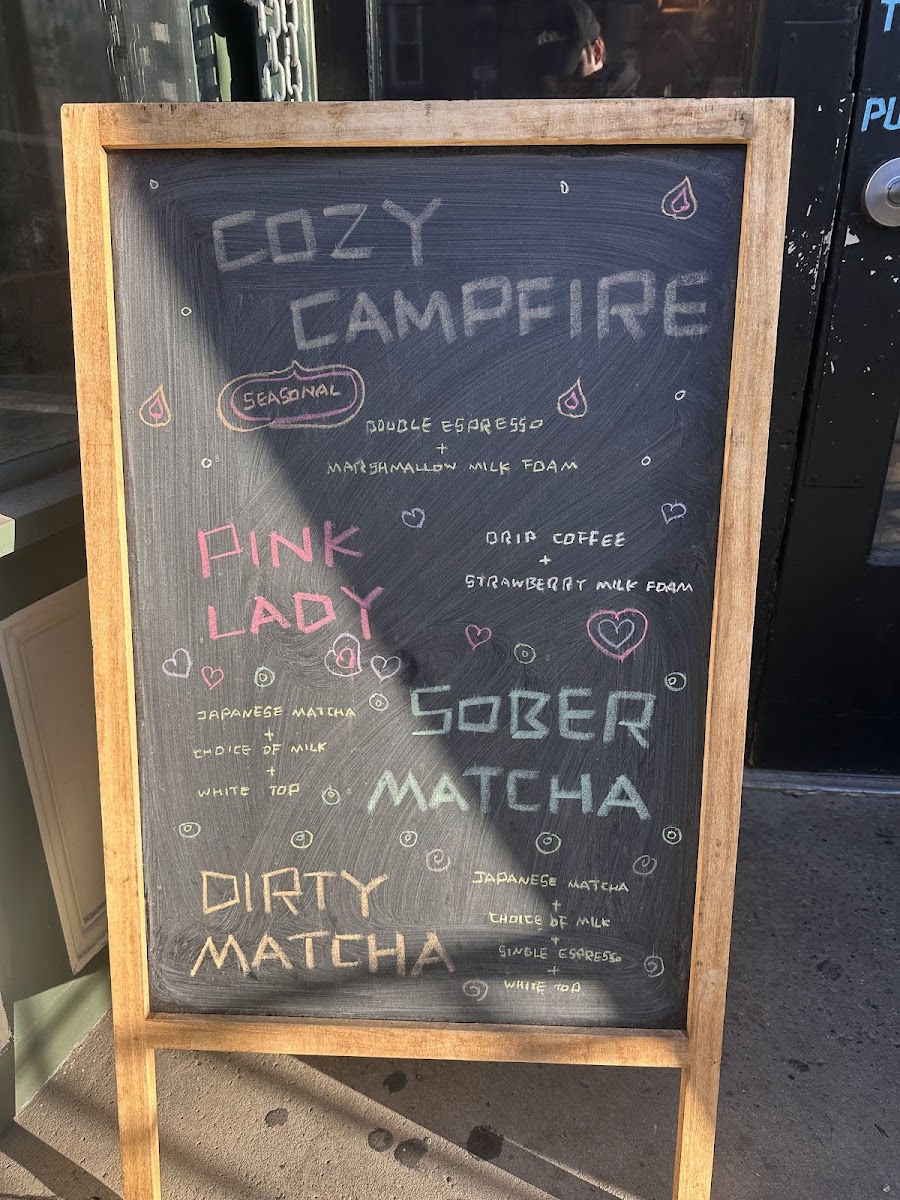 COZY
CAMPFIRE
SEASONAL
DOUBLE ESPRESSO
+
MARSHMALLOW MILK FOAM
PINK
LADY
DRIP COFFEE
+
STRAWBERRY MILK FOAM
SOBER
MATCHA
JAPANESE MATCHA
+
CHOICE OF MILK
+
WHITE TOP
DIRTY
MATCHA
JAPANESE MATCHA
+
CHOICE OF MILK
+
SINGLE ESPRESSO
+
WHITE TOP